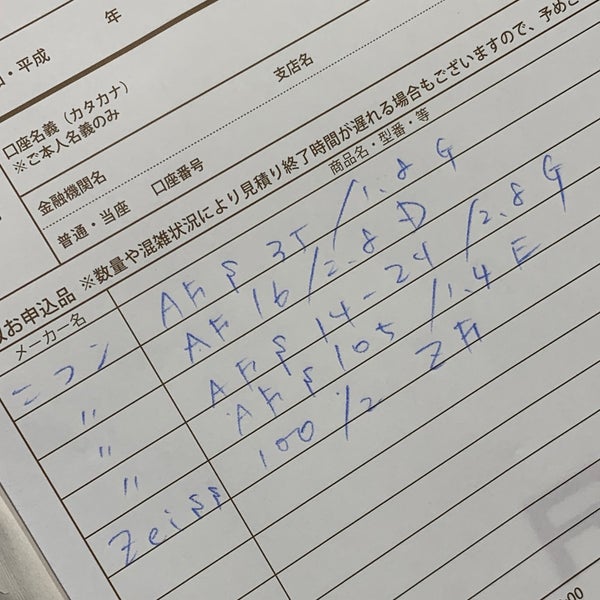 ・平成 年
口座名義（カタカナ） 支店名
※ご本人名義のみ
金融機関名
普通・当座 口座番号
お申込品 ※数量や混雑状況により見積り終了時間が遅れる場合もございますので、予めご
メーカー名 商品名・型番・等
ニコン AFS 35/1.8 G
〃 AF 16/2.8 D
〃 AFS 14-24/2.8 G
〃 AFS 105/1.4 E
Zeiss 100/2 ZF